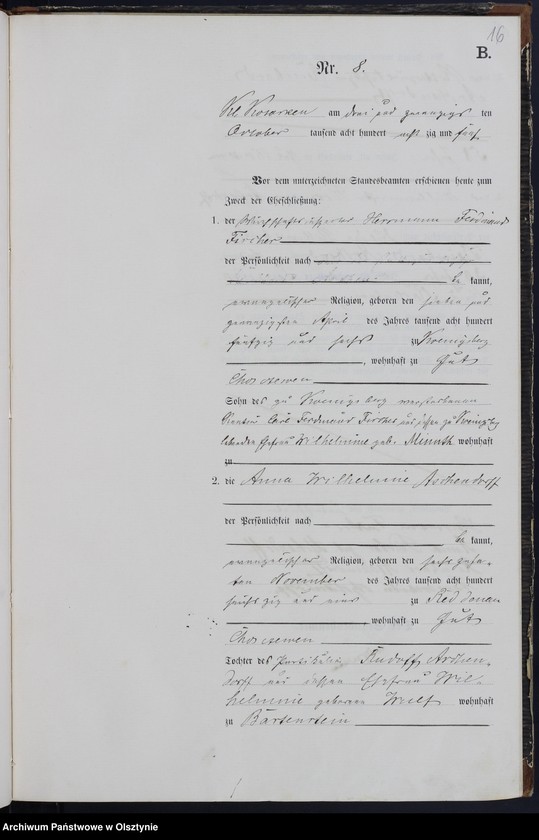 16
B.
Nr. 8.
am drei und zwanzigs ten
October tausend acht hundert acht zig und fünf
Vor dem unterzeichneten Standesbeamten erschienen heute zum
Zweck der Eheschließung:
1. der Wirthschaftsinspector Herrmann Ferdinand
Fischer
der Persönlichkeit nach
be kannt,
evangelischer Religion, geboren den sieben und
zwanzigsten April des Jahres tausend acht hundert
fünfzig und sechs zu Koenigsberg
, wohnhaft zu Gut
Choszewen
Sohn des zu Koenigsberg verstorbenen
Carl Ferdinand Fischer und dessen zu Koenigsberg
lebenden Ehefrau Wilhelmine geb. wohnhaft
zu
2. die Anna Wilhelmine Aschendorff
der Persönlichkeit nach
be kannt,
evangelischer Religion, geboren den sechszehn-
ten November des Jahres tausend acht hundert
sechszig und eins zu Reddenau
, wohnhaft zu Gut
Choszewen
Tochter des Rudolff Aschen-
dorff und dessen Ehefrau Wil-
helmine geborene Wulf wohnhaft
zu Bartenstein
Archiwum Państwowe w Olsztynie